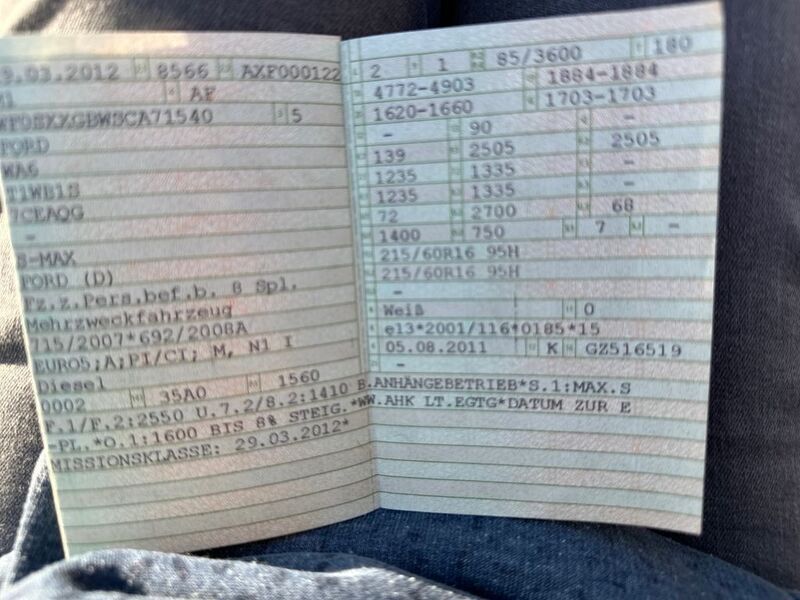 9.03.2012 8566 AXF000122
M1 AF
WF0SXXGBWSCA71540 5
FORD
WA6
T1WB1S
7CEAQG
-
S-MAX
FORD (D)
Fz.z.Pers.bef.b. 8 Spl.
Mehrzweckfahrzeug
715/2007*692/2008A
EURO5;A;PI/CI; M, N1 I
Diesel
0002 35A0 1560
F.1/F.2:2550 U.7.2/8.2:1410 B.ANHÄNGEBETRIEB*S.1:MAX.S
-PL.*O.1:1600 BIS 8% STEIG.*WW.AHK LT.EGTG*DATUM ZUR E
MISSIONSKLASSE: 29.03.2012*
2 1 85/3600 180
4772-4903 1884-1884
1620-1660 1703-1703
- 90 -
139 2505 2505
1235 1335 -
1235 1335 -
72 2700 68
1400 750 7 -
215/60R16 95H
215/60R16 95H
-
Weiß 0
e13*2001/116*0185*15
05.08.2011 K GZ516519
-